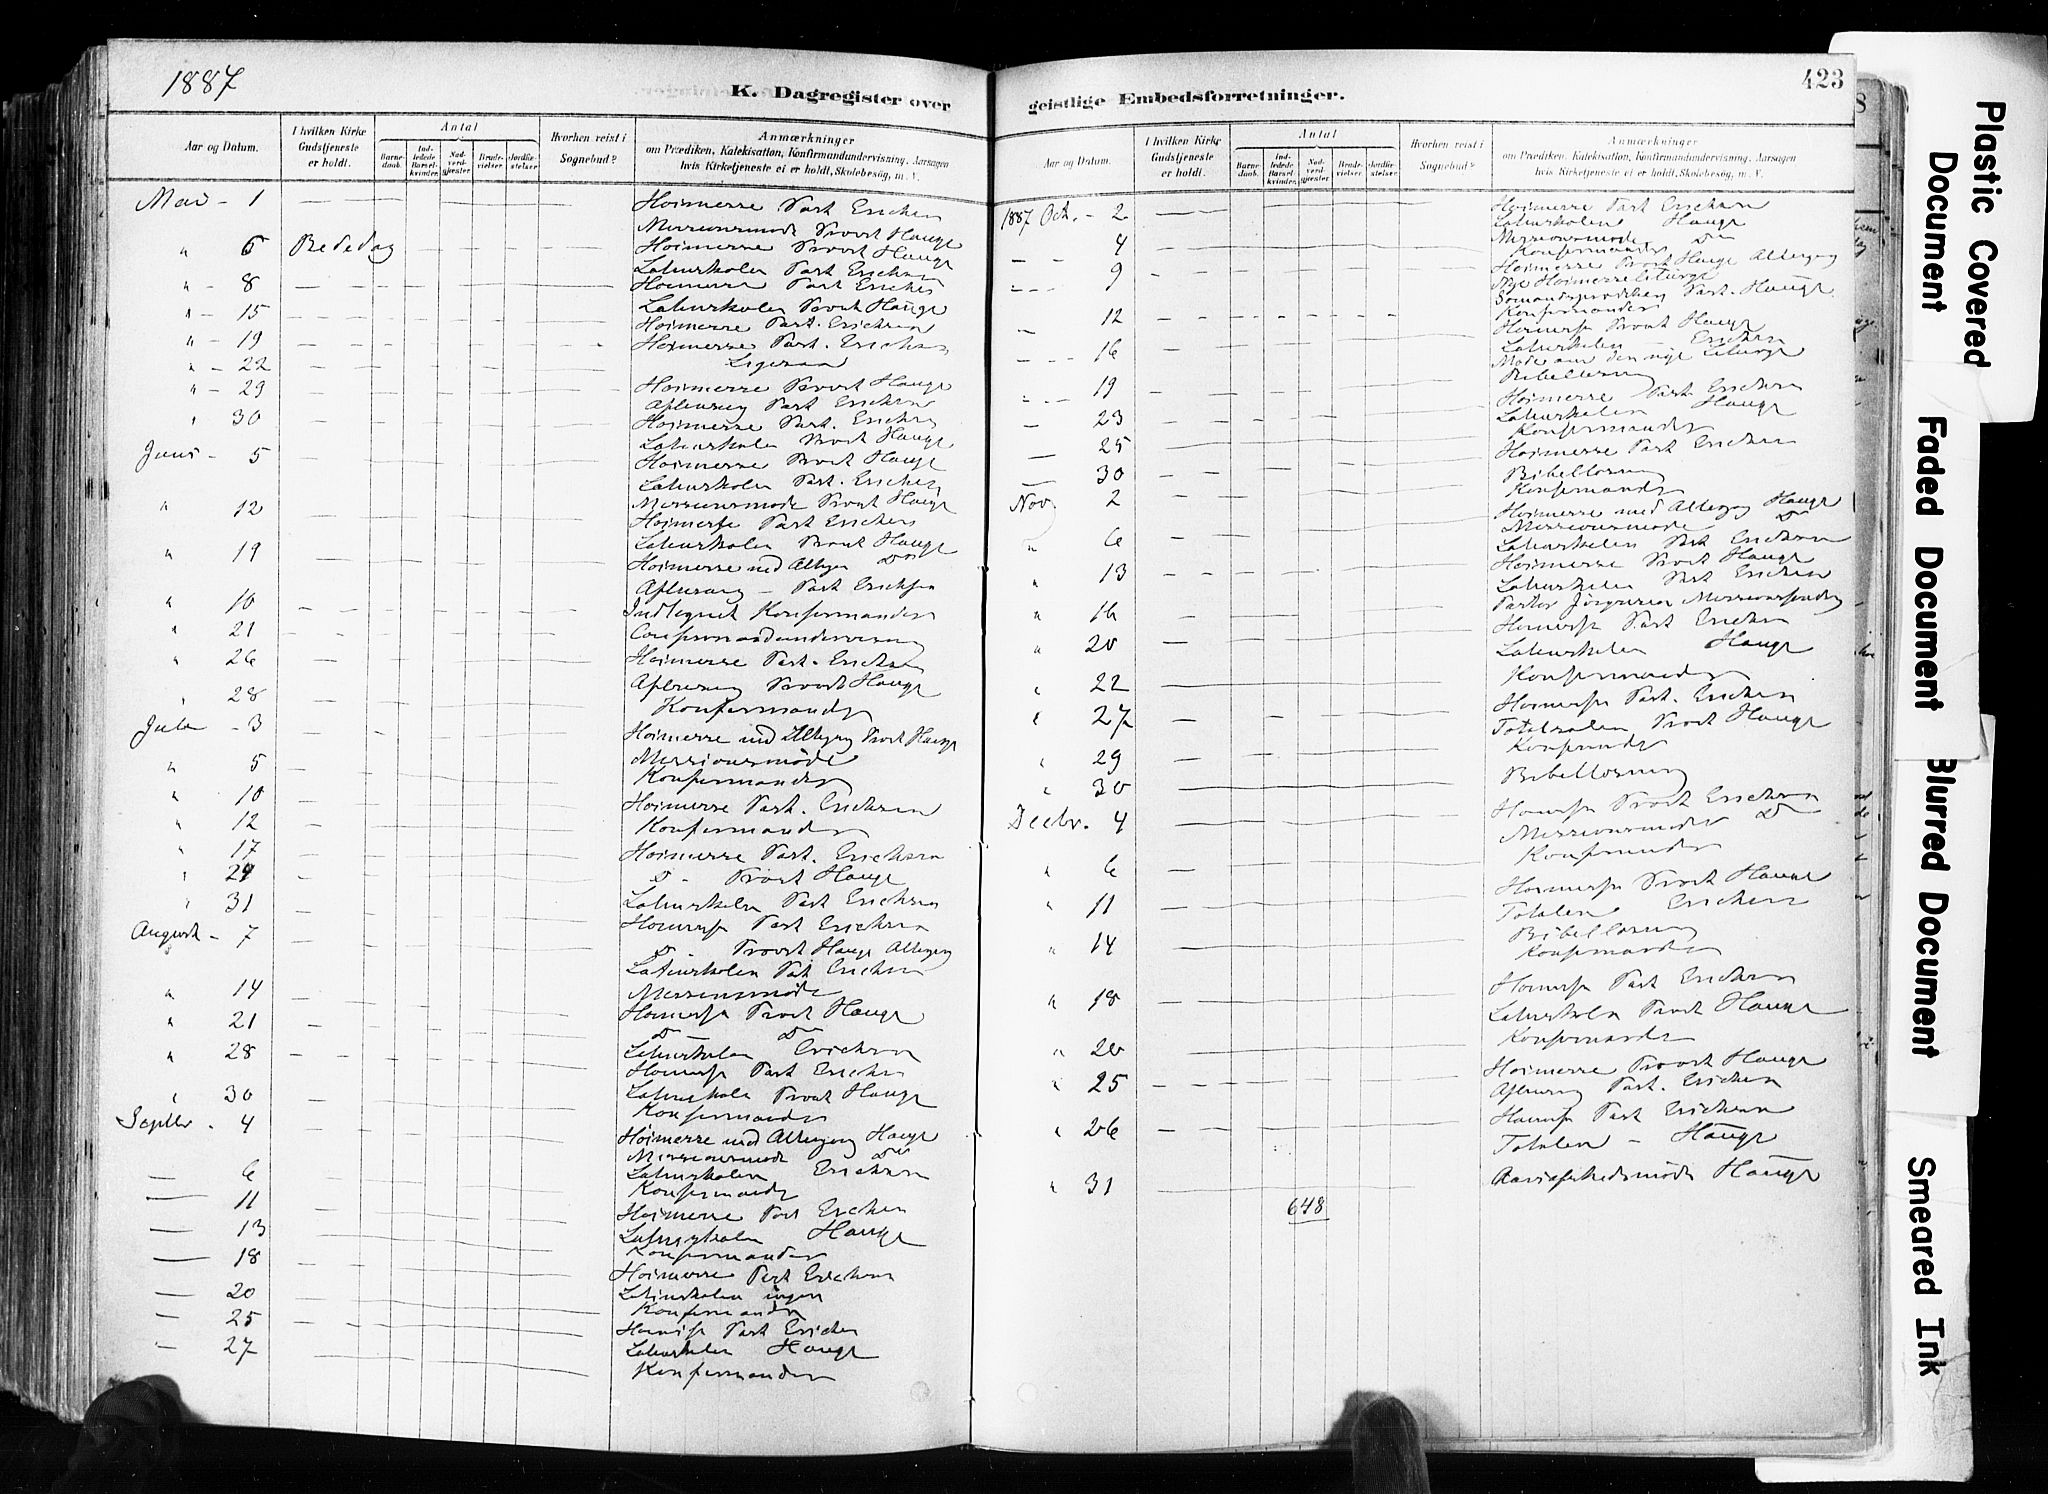 1887
K. Dagregister over
Aar og Datum.
I hvilken Kirke Gudstjeneste er holdt.
Antal
Barne-daab.
Ind-ledede Barsel-kvinder.
Nad-verd-gjester.
Brude-vielser.
Jordfæ-stelser.
Hvorhen reist i Sognebud?
Anmærkninger
om Prædiken, Katekisation, Konfirmandundervisning, Aarsagen
hvis Kirketjeneste ei er holdt, Skolebesøg, m. V.
Mai - 1 Hoimesse Past Erichsen
Missionsmøde Provst Hauge
" 6 Bededag Hoimesse Provst Hauge
Latinskolen Past Erichsen
" - 8 Hoimesse Past Erichsen
Latinskolen Provst Hauge
" - 15 Hoimesse Past. Erichsen
" - 19 Hoimesse Past. Erichsen
" - 22 Ligesaa
" - 29 Hoimesse Provst Hauge
Aftensang Past Erichsen
" 30 Hoimesse Past. Erichsen
Latinskolen Provst Hauge
Juni - 5 Hoimesse Provst Hauge
Latinskolen Past. Erichsen
Missionsmøde Provst Hauge
" 12 Hoimesse Past Erichsen
Latinskolen Provst Hauge
" 19 Hoimesse med Altergang Do
Aftensang - Past Erichsen
" 10 Indtegnet Konfirmander
" 21 Confirmandundervisning
" 26 Hoimesse Past. Erichsen
Aftensang Provst Hauge
" 28 Konfirmander
Juli - 3 Hoimesse med Altergang Provst Hauge
Missionsmøde
" 5 Konfirmander
" 10 Hoimesse Past. Erichsen
" 12 Konfirmander
" 17 Hoimesse Past. Erichsen
" 24 Do - Provst Hauge
" 31 Latinskolen Past Erichsen
August - 7 Hoimesse Past Erichsen
Do - Provst Hauge Altergang
Latinskolen Past Erichsen
" 14 Missionsmøde
" 21 Hoimesse Provst Hauge
Do Do
" 28 Latinskolen Erichsen
Hoimesse Past Erichsen
" 30 Latinskolen Provst Hauge
Konfirmander
Septbr - 4 Hoimesse med Altergang Hauge
Missionsmøde Do
— 6 Latinskolen Erichsen
Konfirmander
— 11 Hoimesse Past Erichsen
— 13 Latinskolen Hauge
Konfirmander
— 18 Hoimesse Past Erichsen
— 20 Latinskolen ingen
Konfirmander
— 25 Hoimesse Past Erichsen
— 27 Latinskolen Hauge
Konfirmander
423
geistlige Embedsforretninger.
Aar og Datum.
I hvilken Kirke Gudstjeneste er holdt.
Antal
Barne-daab.
Ind-ledede Barsel-kvinder.
Nad-verd-gjester.
Brude-vielser.
Jordfæ-stelser.
Hvorhen reist i Sognebud?
Anmærkninger
om Prædiken, Katekisation, Konfirmandundervisning, Aarsagen
hvis Kirketjeneste ei er holdt, Skolebesøg, m. V.
1887 Oct. - 2 Hoimesse Past Erichsen
Latinskolen Hauge
Missionsmøde Do
4 Konfirmander
9 Hoimesse Provst Hauge Altergang
Nye Hoimesse liturgi
Past. Hauge
Konfirmander
12 Hoimesse Provst Hauge
16 Latinskolen Erichsen
Møde om den nye Liturgi
19 Bibellæsning
Hoimesse Past Erichsen
23 Latinskolen Hauge
25 Konfirmander
Hoimesse Past Erichsen
30 Bibellæsning
Nov. 2 Konfirmander
Hoimesse med Altergang Hauge
Missionsmøde Do
" 6 Latinskolen Past Erichsen
" 13 Hoimesse Provst Hauge
Latinskolen Past Erichsen
" 16 Pastor Jörgensen
" 20 Hoimesse Past Erichsen
Latinskolen Hauge
" 22 Konfirmander
" 27 Hoimesse Past. Erichsen
Totalsalen Provst Hauge
" 29 Konfirmander
" 30 Bibellæsning
Decbr. 4 Hoimesse Provst Erichsen
Missionsmøde Do
" 6 Konfirmander
" 11 Hoimesse Provst Hauge
Totalen Erichsen
" 14 Bibellæsning
Konfirmander
" 18 Hoimesse Past Erichsen
Latinskolen Provst Hauge
" 20 Konfirmander
" 25 Hoimesse Provst Hauge
Aftensang Past. Erichsen
" 26 Hoimesse Past Erichsen
Totalen - Hauge
" 31 Hauge
648
Plastic Covered Document
Faded Document
Blurred Document
Smeared Ink